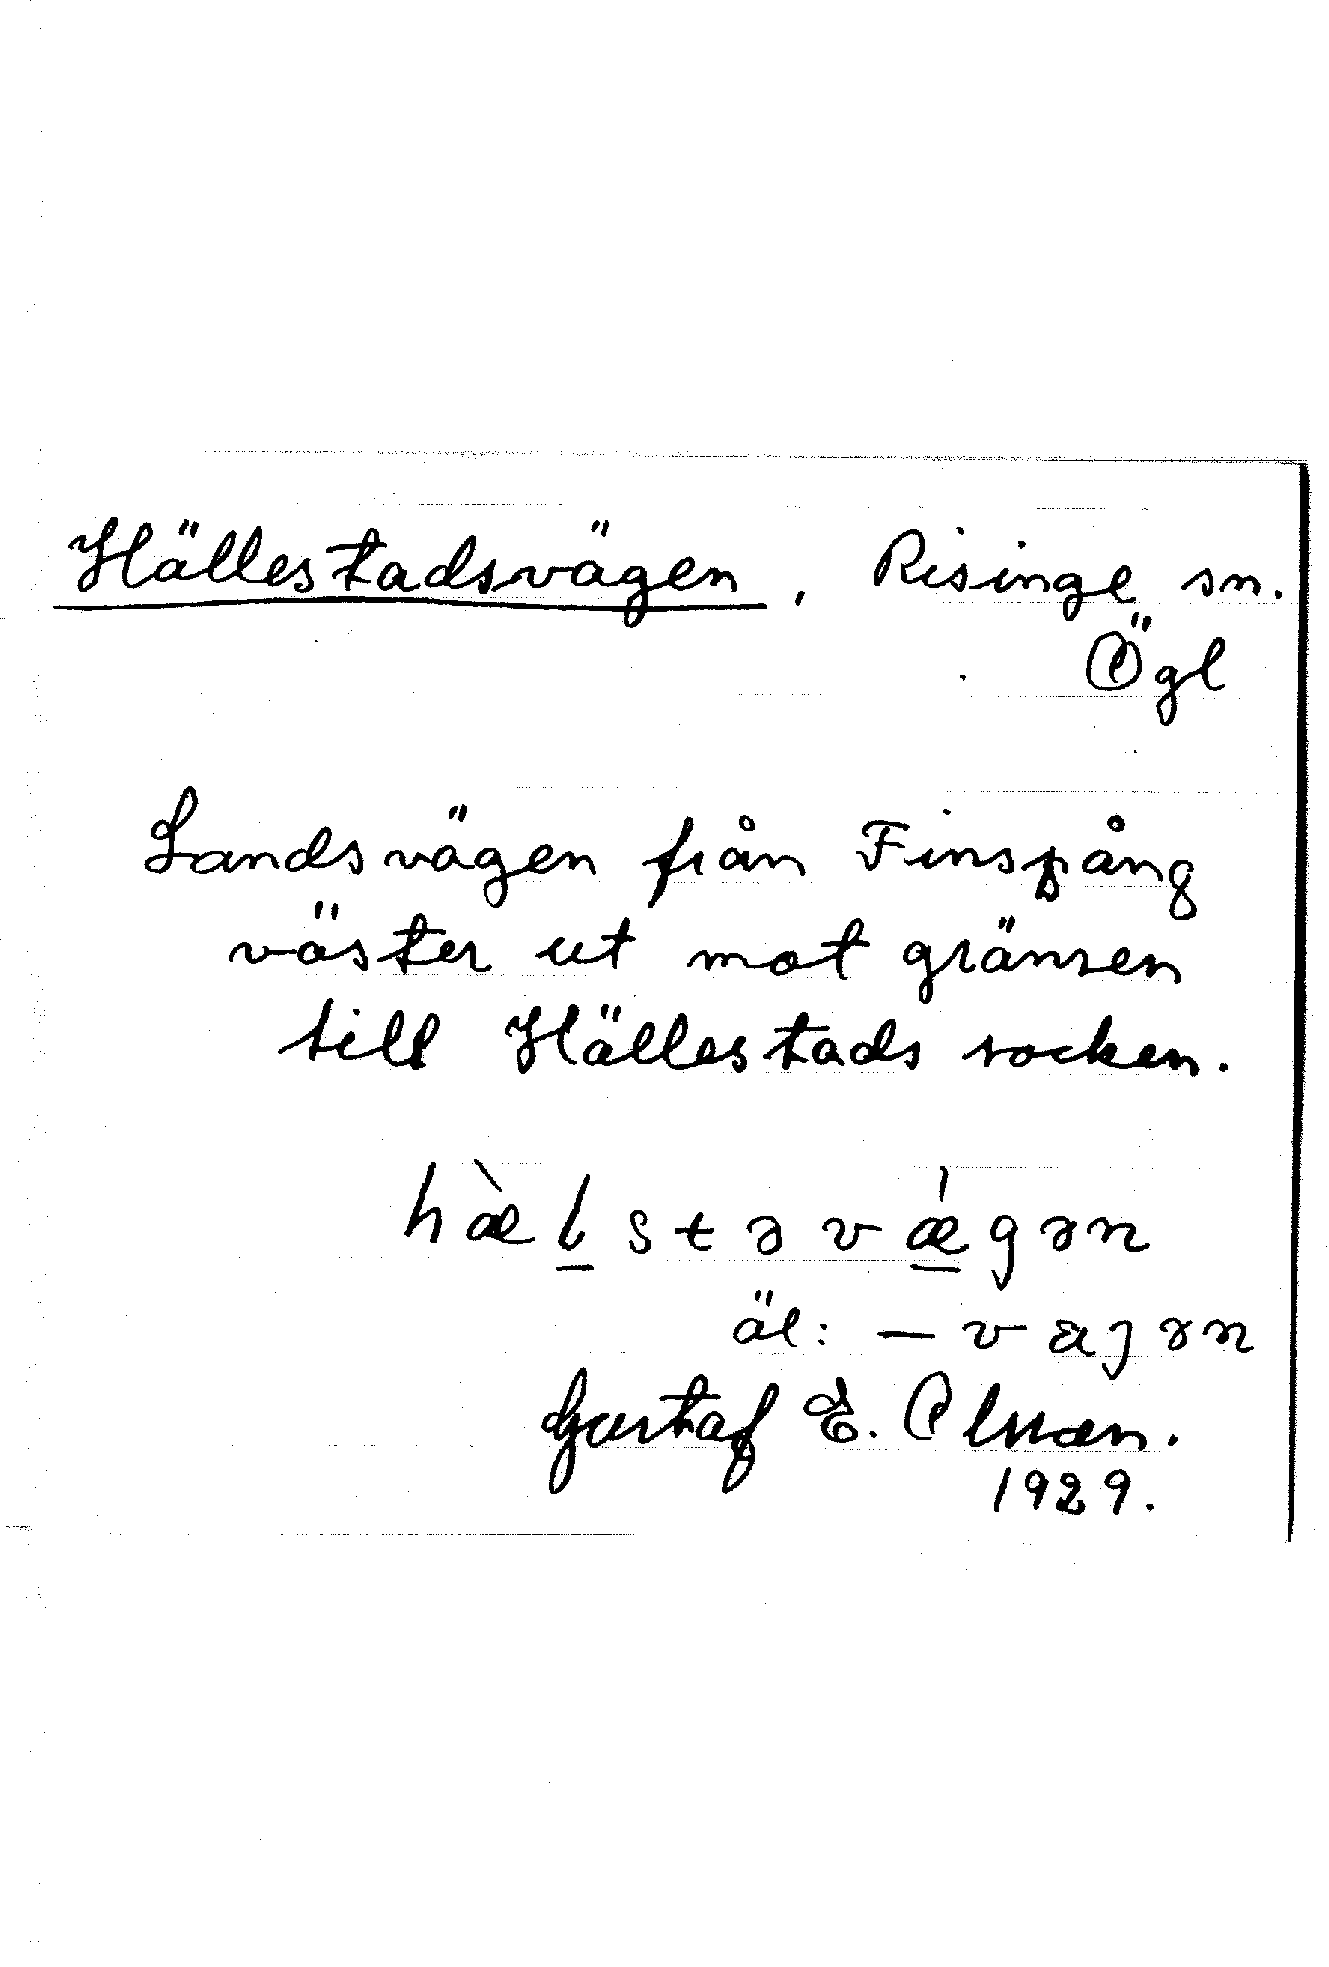 Hällestadsvägen, Risinge sn.
Ögl
Landsvägen från Finspång
väster ut mot gränsen
till Hällestads socken.
hæ̀l̲stəvǽ̲gən
äl: – vægən
Gustaf E. Olsson.
1929.